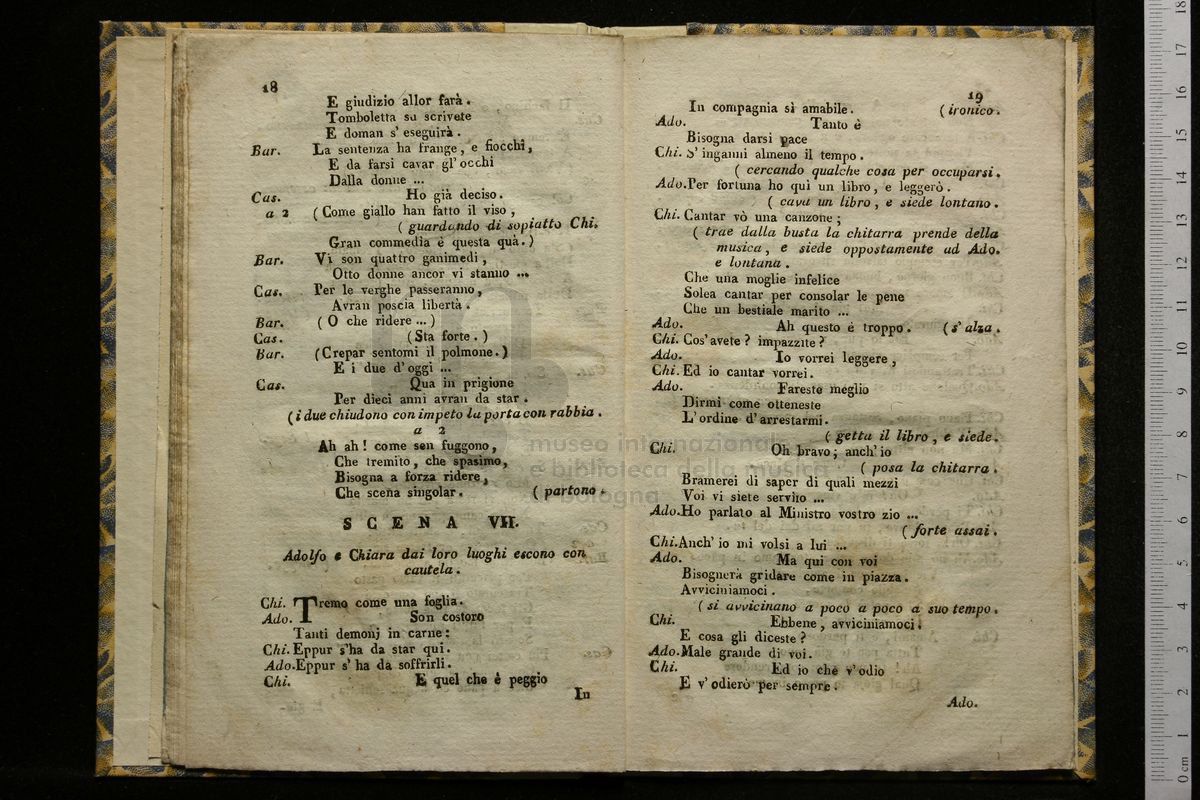 18
E giudizio allor farà.
Tomboletta su scrivete
E doman s' eseguirà.
Bar. La sentenza ha frange, e fiocchi,
E da farsi cavar gl' occhi
Dalla donne ...
Cas. Ho già deciso.
a 2 (Come giallo han fatto il viso,
(guardando di sopiatto Chi.
Gran commedia è questa quà.)
Bar. Vi son quattro ganimedi,
Otto donne ancor vi stanno ...
Cas. Per le verghe passeranno,
Avran poscia libertà.
Bar. (O che ridere ...)
Cas. (Sta forte.)
Bar. (Crepar sentomi il polmone.)
E i due d' oggi ...
Cas. Qua in prigione
Per dieci anni avran da star.
(i due chiudono con impeto la porta con rabbia.
a 2
Ah ah! come sen fuggono,
Che tremito, che spasimo,
Bisogna a forza ridere,
Che scena singolar. (partono.
SCENA VII.
Adolfo e Chiara dai loro luoghi escono con
cautela.
Chi. Tremo come una foglia.
Ado. Son costoro
Tanti demonj in carne:
Chi. Eppur s'ha da star qui.
Ado. Eppur s' ha da soffrirli.
Chi. E quel che è peggio
In
19
In compagnia sì amabile. (ironico.
Ado. Tanto è
Bisogna darsi pace
Chi. S' inganni almeno il tempo.
(cercando qualche cosa per occuparsi.
Ado. Per fortuna ho quì un libro, e leggerò.
(cava un libro, e siede lontano.
Chi. Cantar vò una canzone;
(trae dalla busta la chitarra prende della
musica, e siede oppostamente ad Ado.
e lontana.
Che una moglie infelice
Solea cantar per consolar le pene
Che un bestiale marito ...
Ado. Ah questo é troppo. (s' alza.
Chi. Cos' avete? impazzite?
Ado. Io vorrei leggere,
Chi. Ed io cantar vorrei.
Ado. Fareste meglio
Dirmi come otteneste
L' ordine d' arrestarmi.
(getta il libro, e siede.
Chi. Oh bravo; anch' io
(posa la chitarra.
Bramerei di saper di quali mezzi
Voi vi siete servito ...
Ado. Ho parlato al Ministro vostro zio ...
(forte assai.
Chi. Anch' io mi volsi a lui ...
Ado. Ma qui con voi
Bisognerà gridare come in piazza.
Avviciniamoci.
(si avvicinano a poco a poco a suo tempo.
Chi. Ebbene, avviciniamoci.
E cosa gli diceste?
Ado. Male grande di voi.
Chi. Ed io che v' odio
E v' odierò per sempre.
Ado.
museo internazionale
e biblioteca della musica
bologna
0 cm 1 2 3 4 5 6 7 8 9 10 11 12 13 14 15 16 17 18